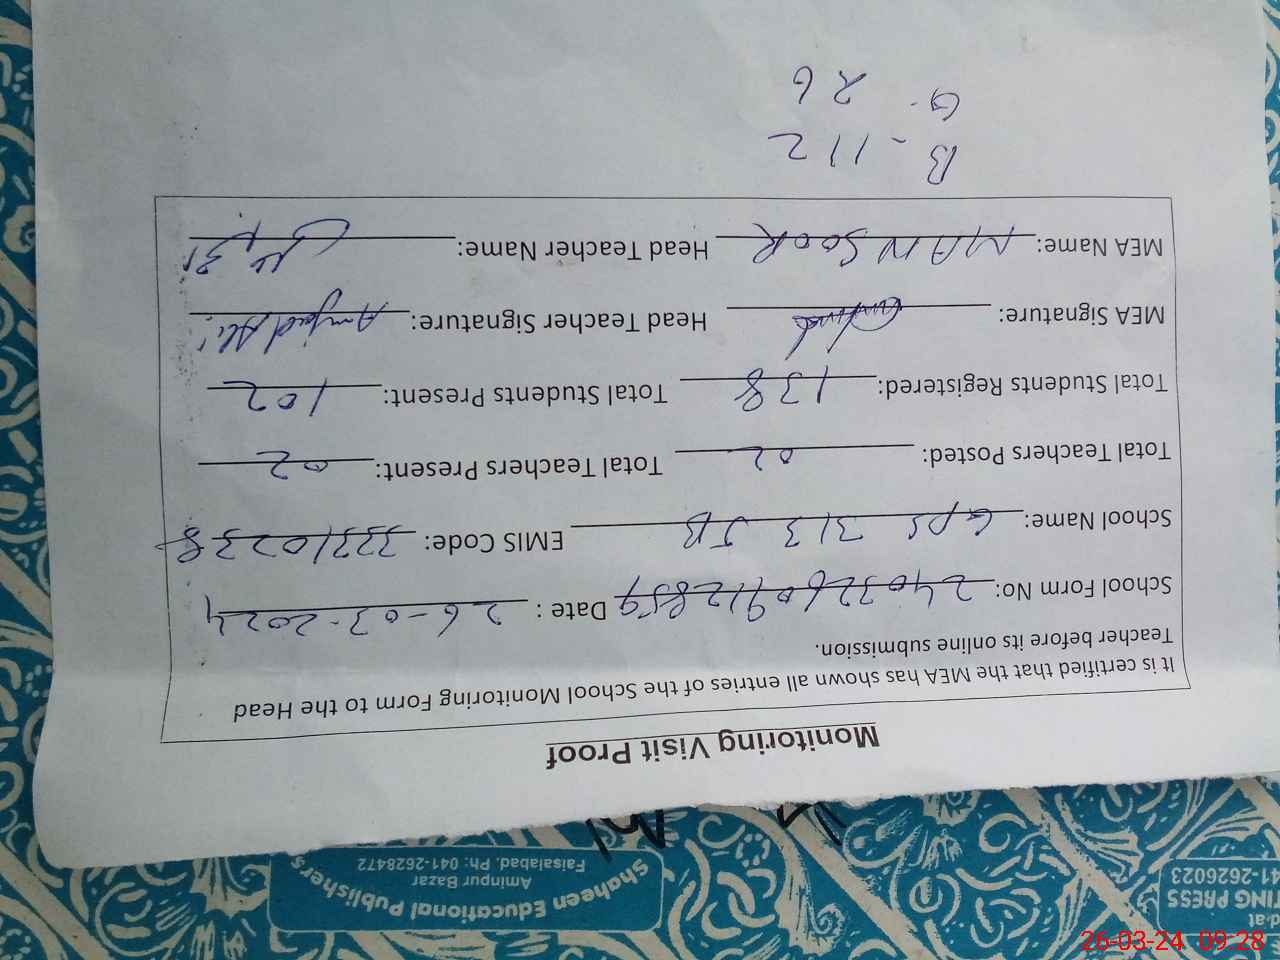 Monitoring Visit Proof
It is certified that the MEA has shown all entries of the School Monitoring Form to the Head
Teacher before its online submission.
School Form No: 2403260912859 Date : 26-03-2024
School Name: GPS 313 JB EMIS Code: 33310238
Total Teachers Posted: 02 Total Teachers Present: 02
Total Students Registered: 138 Total Students Present: 102
MEA Signature: Head Teacher Signature: Amjad Ali
MEA Name: MANSOOR Head Teacher Name:
B - 112
G. 26
Shaheen Educational Publishers
Aminpur Bazar
Faisalabad. Ph: 041-2628472
TING PRESS
41-2626023
26-03-24 09:28